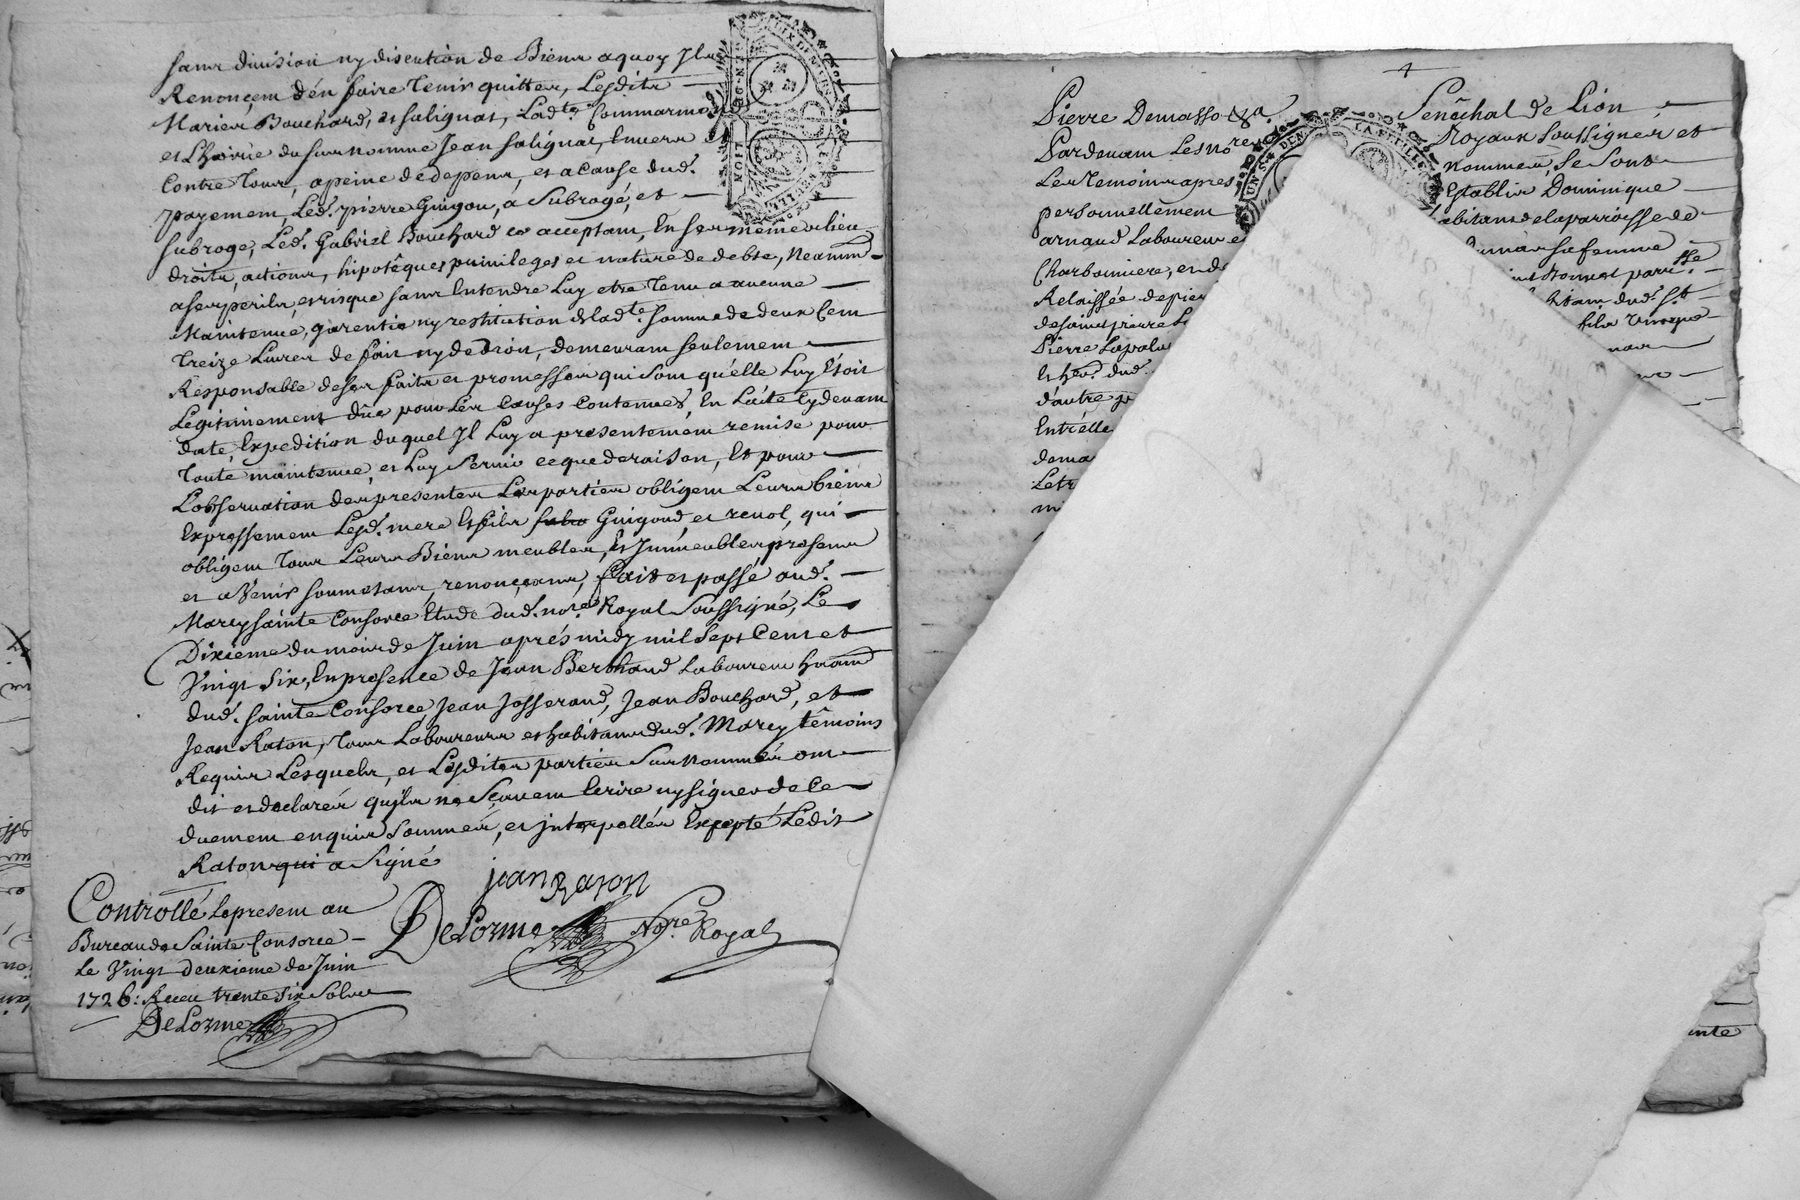 sans division ny discution de Biens aquoy Ils
Renonçent d'én faire Tenir quitter, Lesdits
Mariés Bouchard, et salignat, Ladte. Sommarmon
et L'hoirie du surnommé Jean salignat, Envers
Contre Tous, apeine de depens, et a Cause dud.
payement, Led. pierre Guigou, a Subrogé, et
subroge, Led. Gabriel Bouchard ce acceptant, En ses mêmes lieu
droits, actions, hipotêques privileges et nature de debte, Neanm
a ses perils, et risque sans Entendre Luy etre Tenu a aucune
Maintenue, garentie ny restitution de Ladte. somme de deux Cent
Treize Livres de fait ny de droit, demeurant seulement
Responsable de ses faits et promesses qui sont qu'élle Luy Étoit
Legitimement düe pour Lés Causes Contenües, En L'acte Cy devant
daté, Expedition duquel Il Luy a presentement remise pour
Toute maintenue, et Luy Servir ce que de raison, Et pour
L'observation des presentes Les parties obligent Leurs biens
Expressement Lesd. mere Et fils Guigoud, et revol, qui
obligent Tous Leurs Biens meubles, Et Immeubles presents
et a Venir soumetans, renonçeans, fait et passé aud.
Marcy sainte Consorce Etude dud. nore. Royal Soussigné, Le
Dixieme du mois de Juin aprés midy mil sept Cent et
Vingt Six, En presence de Jean Berthaud Laboureur hâand
dud. sainte Consorce Jean Josserand, Jean Bouchard, et
Jean Raton, Tous Laboureurs et habitans dud. Marcy têmoins
Requis Lesquels, et Lesdites parties Surnommées ont
dit et declarés qu'ils ne Sçavent Ecrire ny signer de Ce
duement enquis Sommés, et interpellés Excepté Ledit
Raton qui a Signé
jean Raton
Controllé Le present au
Bureau de Sainte Consorce
Le Vingt deuxieme de Juin
1726: Receu trente six Sols
DeLorme
DeLorme Nore. Royal
Pierre Demasso &a.
Senêchal de Lion
Pardevant Les Nores.
Royaux soussignés et
Les Temoins apres
nommés, Se Sont
personnellement
Etablis Dominique
arnaud Laboureur
abitant de la parroisse de
Charbonniere, et de
sa femme
Relaissée de pier
de saint pierre
Pierre Lapala
Et hers. dud.
d'autre p
Entr'élle
dema
Letr